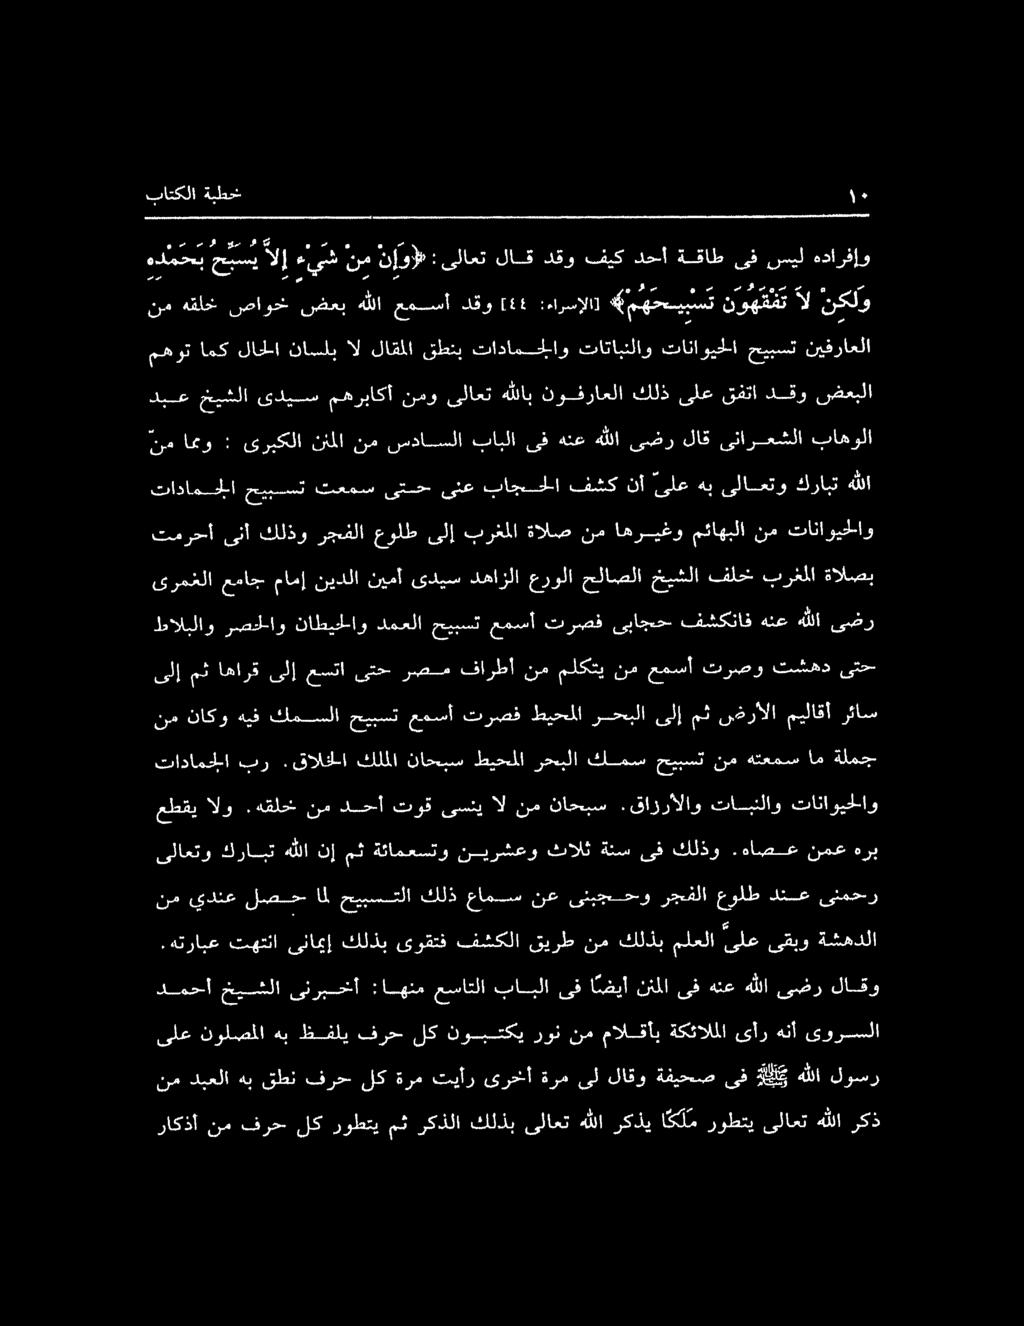 ١٠ خطبة الكتاب
وإفراده ليس فى طاقة أحد كيف وقد قال تعالى: ﴿وَإِنْ مِنْ شَيْءٍ إِلاَّ يُسَبِّحُ بَحَمْدِهِ
وَلَكِنْ لاَ تَفْقَهُونَ تَسْبِيحَهُمْ﴾ [الإسراء: ٤٤] وقد أسمع الله بعض خواص خلقه من
العارفين تسبيح الحيوانات والنباتات والجمادات بنطق المقال لا بلسان الحال كما توهم
البعض وقد اتفق على ذلك العارفون بالله تعالى ومن أكابرهم سيدى الشيخ عبد
الوهاب الشعرانى قال رضى الله عنه فى الباب السادس من المنن الكبرى : ومما منّ
الله تبارك وتعالى به علىّ أن كشف الحجاب عنى حتى سمعت تسبيح الجمادات
والحيوانات من البهائم وغيرها من صلاة المغرب إلى طلوع الفجر وذلك أنى أحرمت
بصلاة المغرب خلف الشيخ الصالح الورع الزاهد سيدى أمين الدين إمام جامع الغمرى
رضى الله عنه فانكشف حجابى فصرت أسمع تسبيح العمد والخيطان والخصر والبلاط
حتى دهشت وصرت أسمع من يتكلم من أطراف مصر حتى اتسع إلى قراها ثم إلى
سائر أقاليم الأرض ثم إلى البحر المحيط فصرت أسمع تسبيح السمك فيه وكان من
جملة ما سمعته من تسبيح سمك البحر المحيط سبحان الملك الخلاق. رب الجمادات
والحيوانات والنبات والأرزاق. سبحان من لا ينسى قوت أحد من خلقه. ولا يقطع
بره عمن عصاه. وذلك فى سنة ثلاث وعشرين وتسعمائة ثم إن الله تبارك وتعالى
رحمنى عند طلوع الفجر وحجبنى عن سماع ذلك التسبيح لما حصل عندي من
الدهشة وبقى علىَّ العلم بذلك من طريق الكشف فتقوى بذلك إيمانى انتهت عبارته.
وقال رضى الله عنه فى المنن أيضًا فى الباب التاسع منها: أخبرنى الشيخ أحمد
السروى أنه رأى الملائكة بأقلام من نور يكتبون كل حرف يلفظ به المصلون على
رسول الله ﷺ فى صحيفة وقال لى مرة أخرى رأيت مرة كل حرف نطق به العبد من
ذكر الله تعالى يتطور مَلَكًا يذكر الله تعالى بذلك الذكر ثم يتطور كل حرف من أذكار